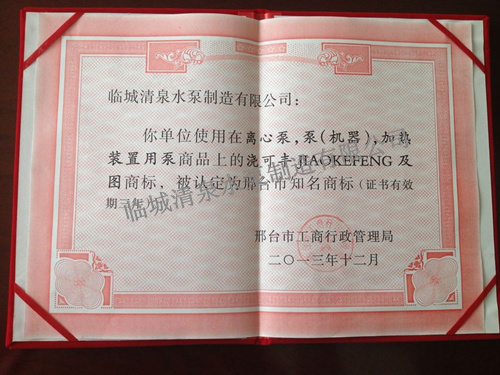 临城清泉水泵制造有限公司：
你单位使用在离心泵,泵(机器),加热
装置用泵商品上的浇可丰JIAOKEFENG及
图商标，被认定为邢台市知名商标（证书有效
期三年
邢台市工商行政管理局
二〇一三年十二月
临城清泉水泵制造有限公司